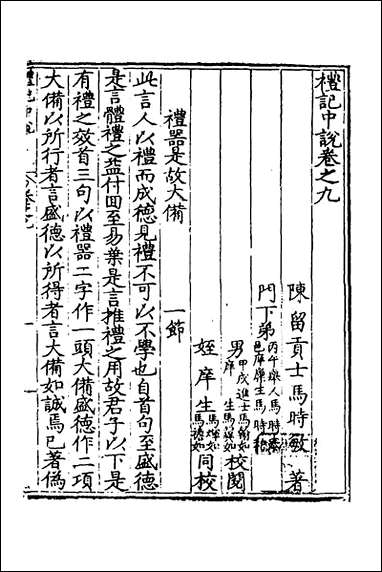 禮記中說卷之九
陳留貢士馬時敏著
門下弟丙午舉人馬時
邑庠廩生馬時
男甲戌進士馬如校閱
庠生馬如
姪庠生馬如同校
馬如
禮器是故大備 一節
此言人以禮而成德見禮不可以不學也自首句至盛德
是言體禮之益什回至易葉是言推禮之用故君子以下是
有禮之效首三句以禮器二字作一頭大備盛德作二項
大備以所行者言盛德以所得者言大備如誠焉已著偽